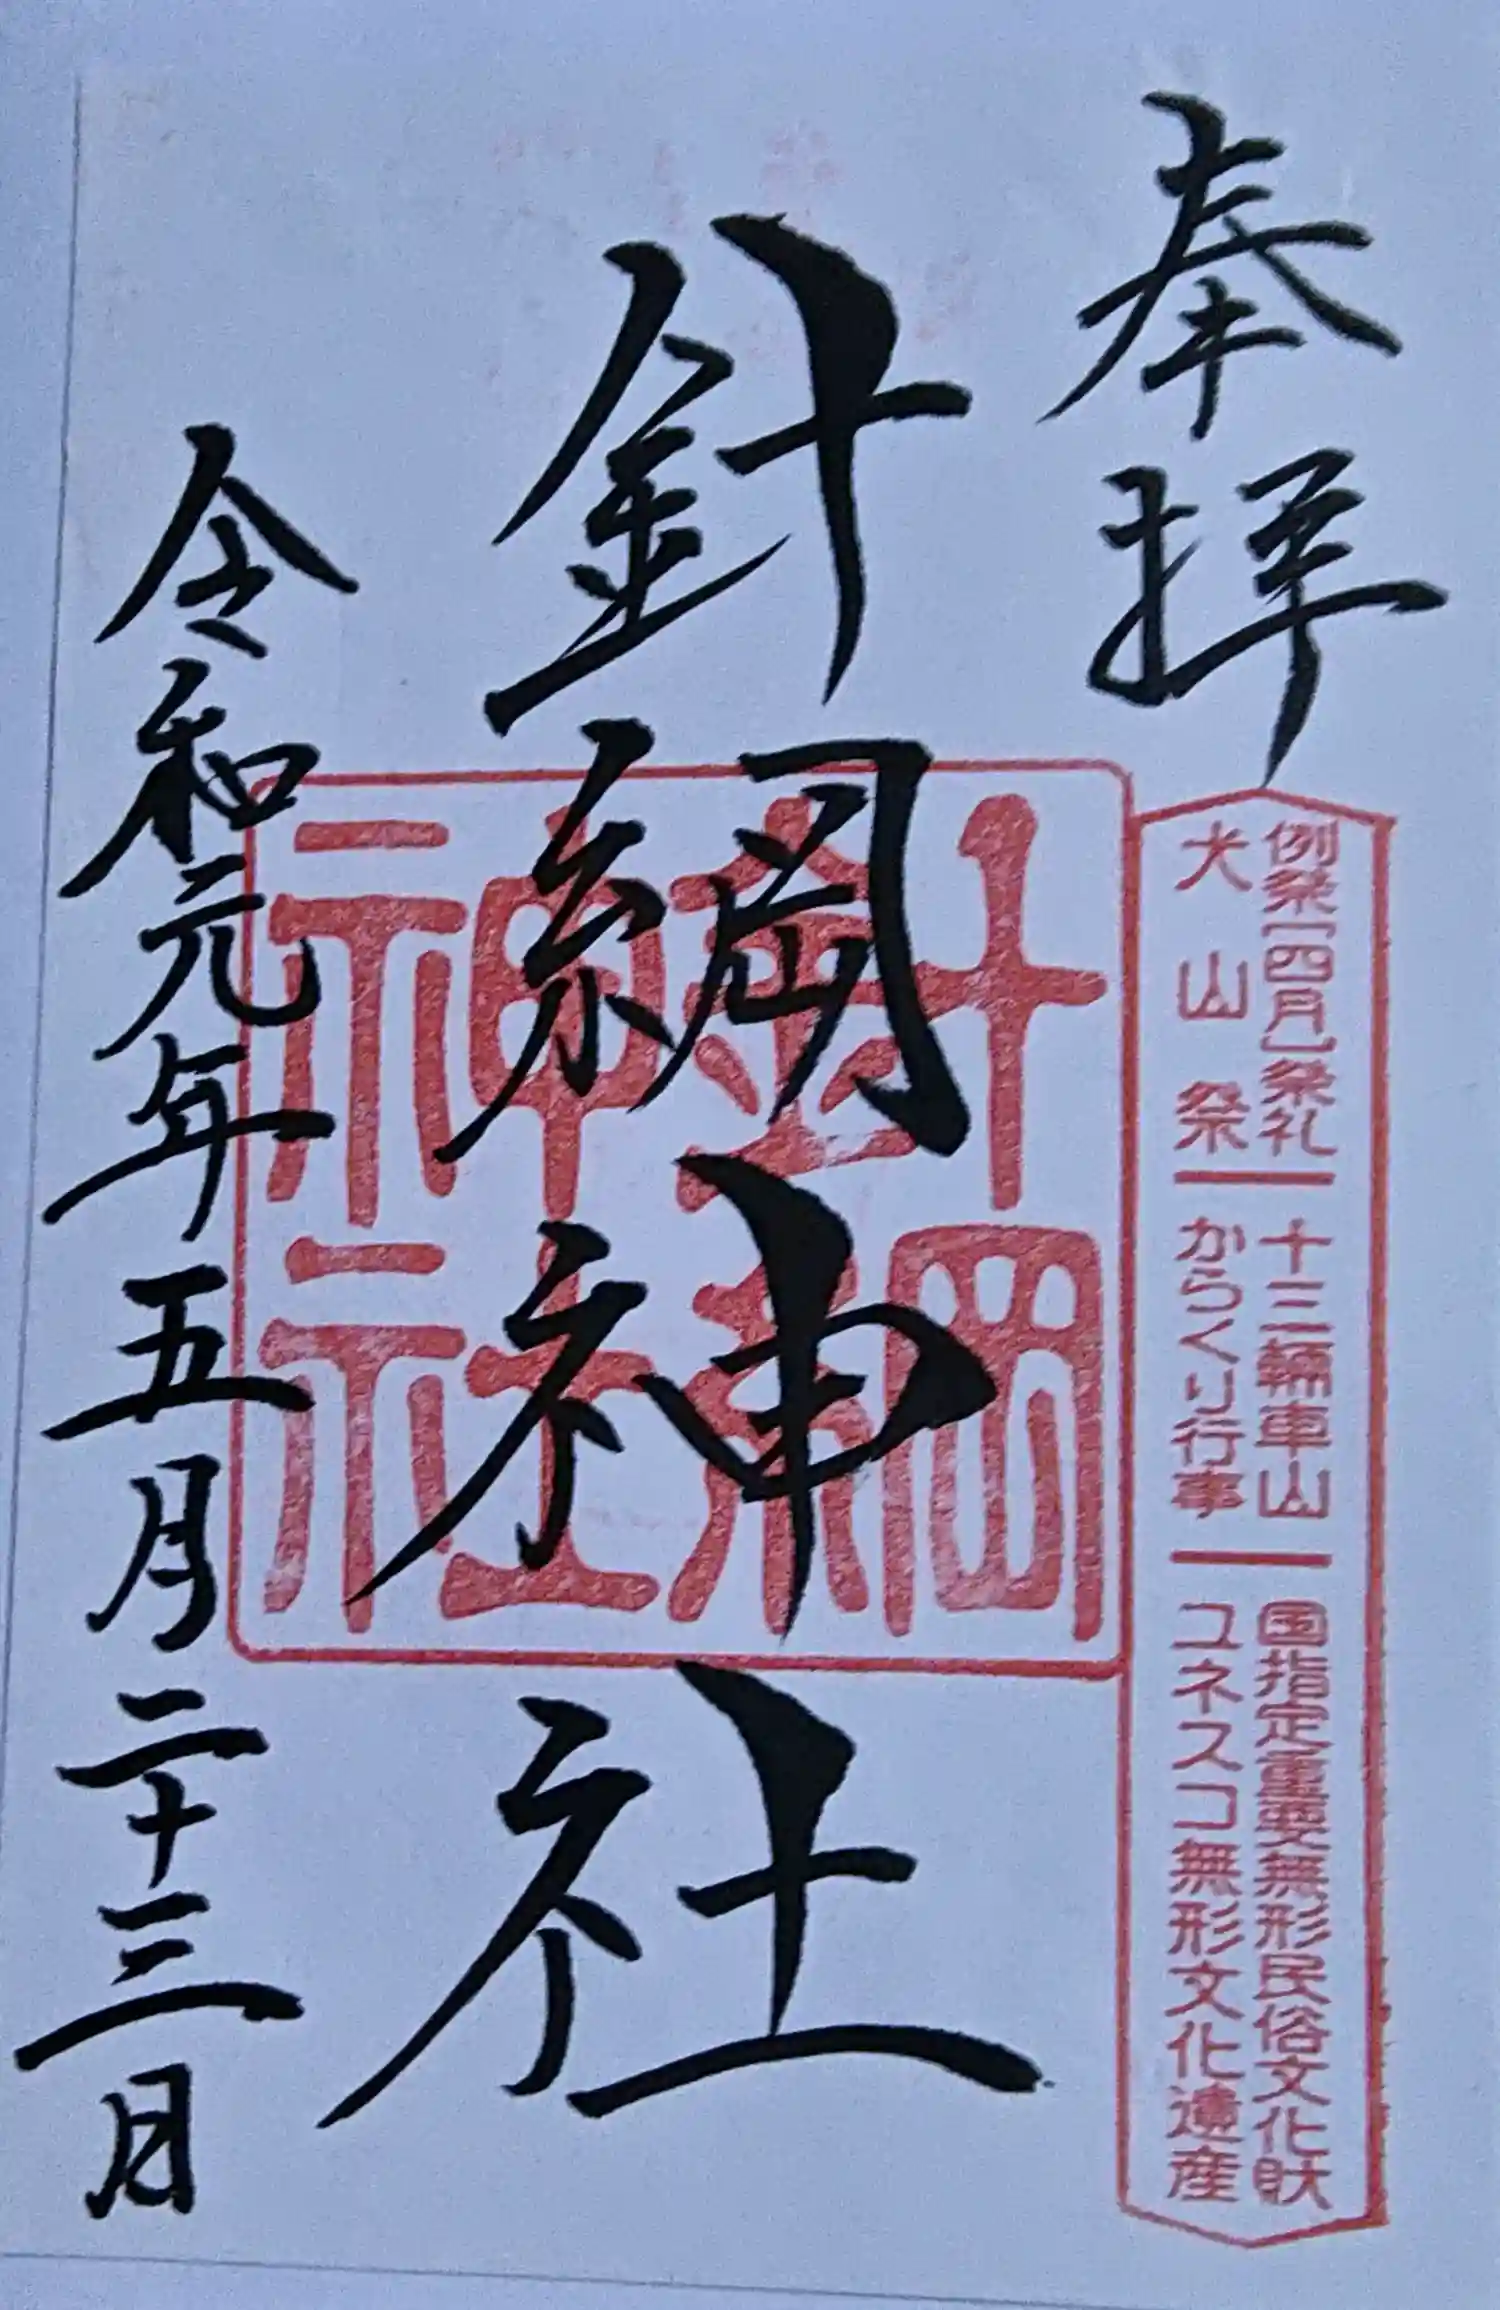 奉拝
例祭[四月]祭礼 十三輛車山 国指定重要無形民俗文化財
犬山祭 からくり行事 ユネスコ無形文化遺産
針綱神社
針綱
神社
令和元年五月二十三日